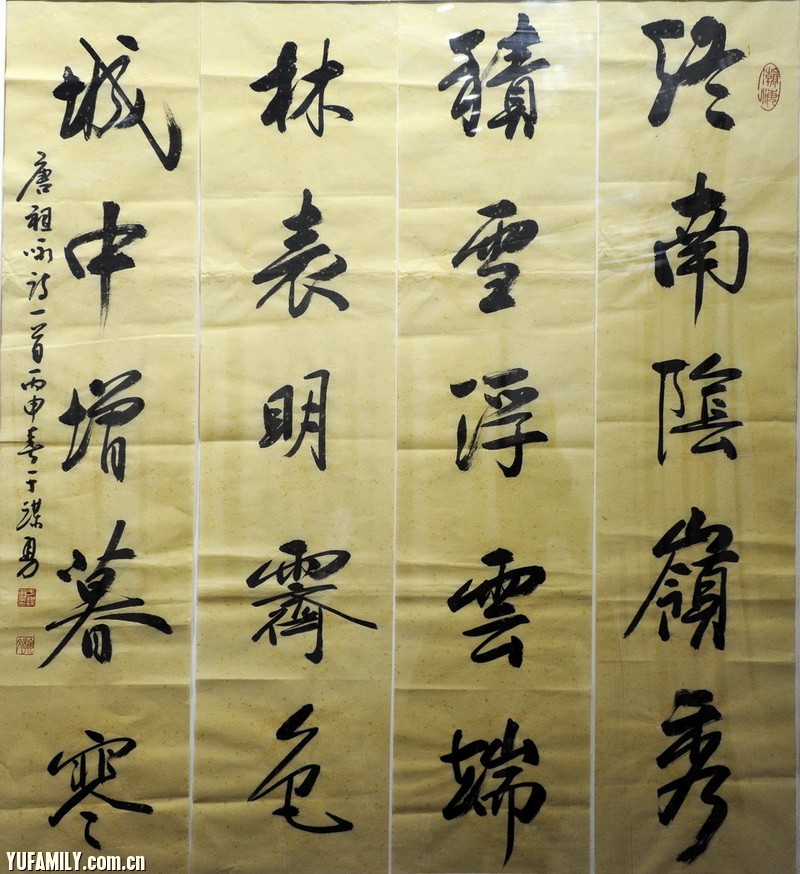 终南陰嶺秀
積雪浮雲端
林表明霽色
城中增暮寒
唐祖咏詩一首丙申春于謀勇
YUFAMILY.com.cn